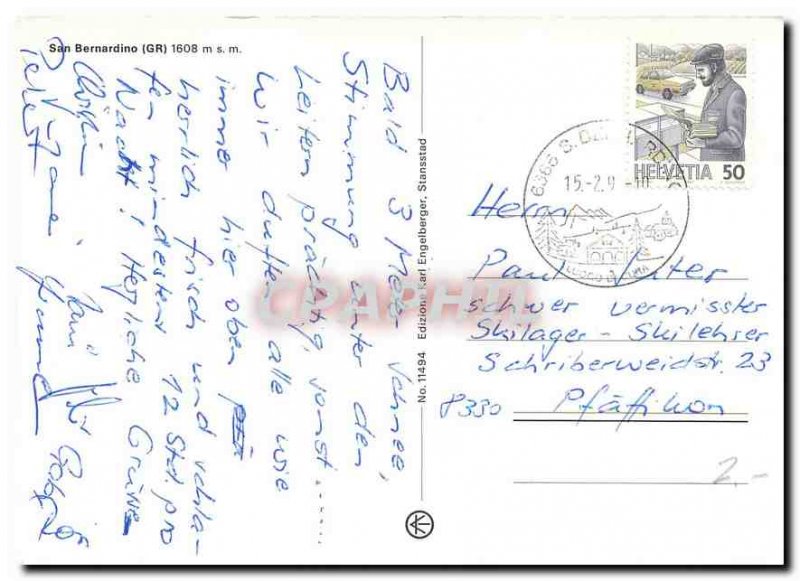 San Bernardino (GR) 1608 m s. m.
Bald 3 Meter Schnee,
Stimmung unter den
Leiten prächtig, sonst.......
Wir duften alle wie
immer hier oben
herrlich frisch und schla-
fen mindestens 12 Std. pro
Nacht! Herzliche Grüsse
No. 11494 Edizione Karl Engelberger, Stansstad
6565 S. BERNARDINO
15.-2.9 -10
HELVETIA 50
Herrn
Paul Suter
schwer vermisster
Skilager-Skilehrer
Schriberweidstr. 23
8330 Pfäffikon
2.-
CPAPHIL